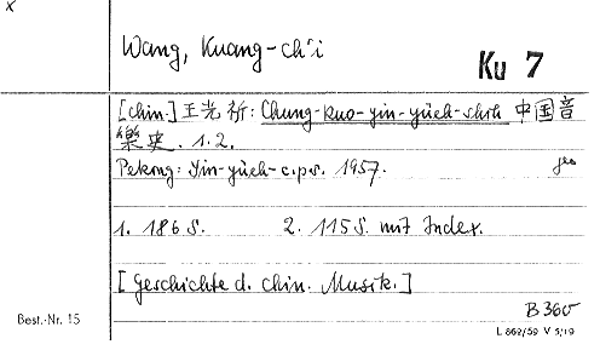 x
Wang, Kuang-ch'i
Ku 7
[chin.] 王光祈: Chung-kuo-yin-yüeh-shih 中国音
樂史. 1.2.
Peking: Yin-yüeh-c.p.s. 1957.
1. 186 S. 2. 115 S. mit Index.
[Geschichte d. chin. Musik.]
B 360
Best.-Nr. 15
L 862/59 V 5/19